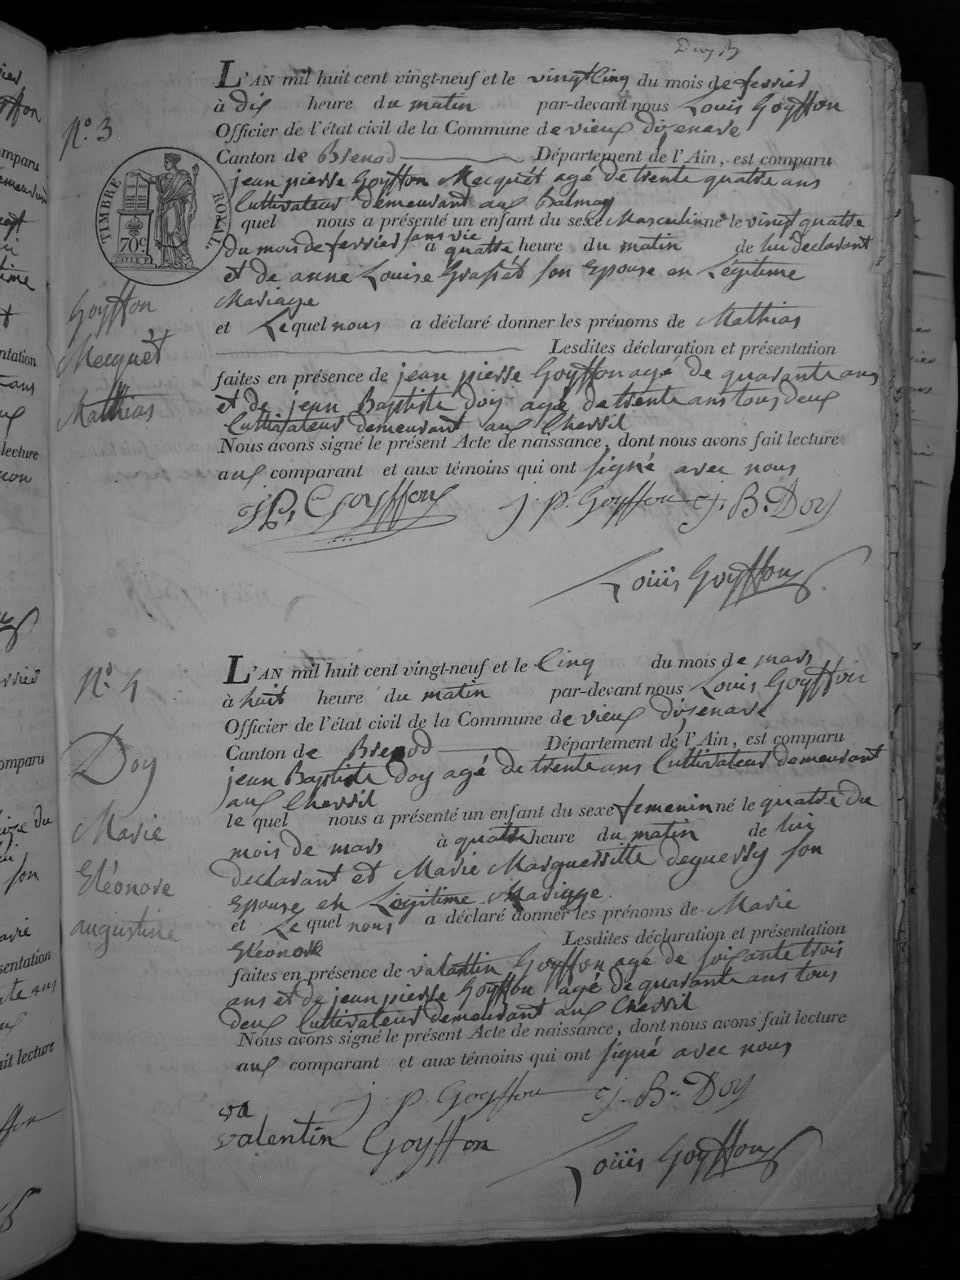 L'AN mil huit cent vingt-neuf et le vingt Cinq du mois de fevrier
à dix heure du matin par-devant nous Louis Goyffon
N.º 3
Officier de l'état civil de la Commune de vieux dizenave
Canton de Brenod Département de l'Ain, est comparu
jean pierre Goyffon Mecquet agé de trente quatre ans
Cultivateur demeurant au Balmay
TIMBRE ROYAL
70 c
quel nous a présenté un enfant du sexe Masculin né le vingt quatre
du mois de fevrier sans vie à quatre heure du matin de lui declarant
et de anne Louise Grasset son Epouse en Légitime
Mariage
Goyffon
et Le quel nous a déclaré donner les prénoms de Mathias
Mecquet
Lesdites déclaration et présentation
faites en présence de jean pierre Goyffon agé de quarante ans
Mathias
et de jean Baptiste Doy agé de trente ans tous deux
Cultivateur demeurant aux Chevril
Nous avons signé le présent Acte de naissance, dont nous avons fait lecture
aux comparant et aux témoins qui ont signé avec nous
JP. Goyffon j. p. Goyffon j. B. Doy
Louis Goyffon
L'AN mil huit cent vingt-neuf et le Cinq du mois de mars
N.º 4
à huit heure du matin par-devant nous Louis Goyffon
Officier de l'état civil de la Commune de vieux dizenave
Canton de Brenod Département de l'Ain, est comparu
Doy
jean Baptiste Doy agé de trente ans Cultivateur demeurant
aux Chevril
le quel nous a présenté un enfant du sexe femenin né le quatre du
Marie
mois de mars à quatre heure du matin de lui
declarant et Marie Marguerritte deguerry son
Eléonore
Epouse en Légitime Mariage.
et Le quel nous a déclaré donner les prénoms de Marie
augustine
Eléonore Lesdites déclaration et présentation
faites en présence de valantin Goyffon agé de soixante trois
ans et de jean pierre Goyffon agé de quarante ans tous
deux Cultivateur demeurant aux Chevril
Nous avons signé le présent Acte de naissance, dont nous avons fait lecture
aux comparant et aux témoins qui ont signé avec nous
j. p. Goyffon j. B. Doy
va
valentin Goyffon
Louis Goyffon